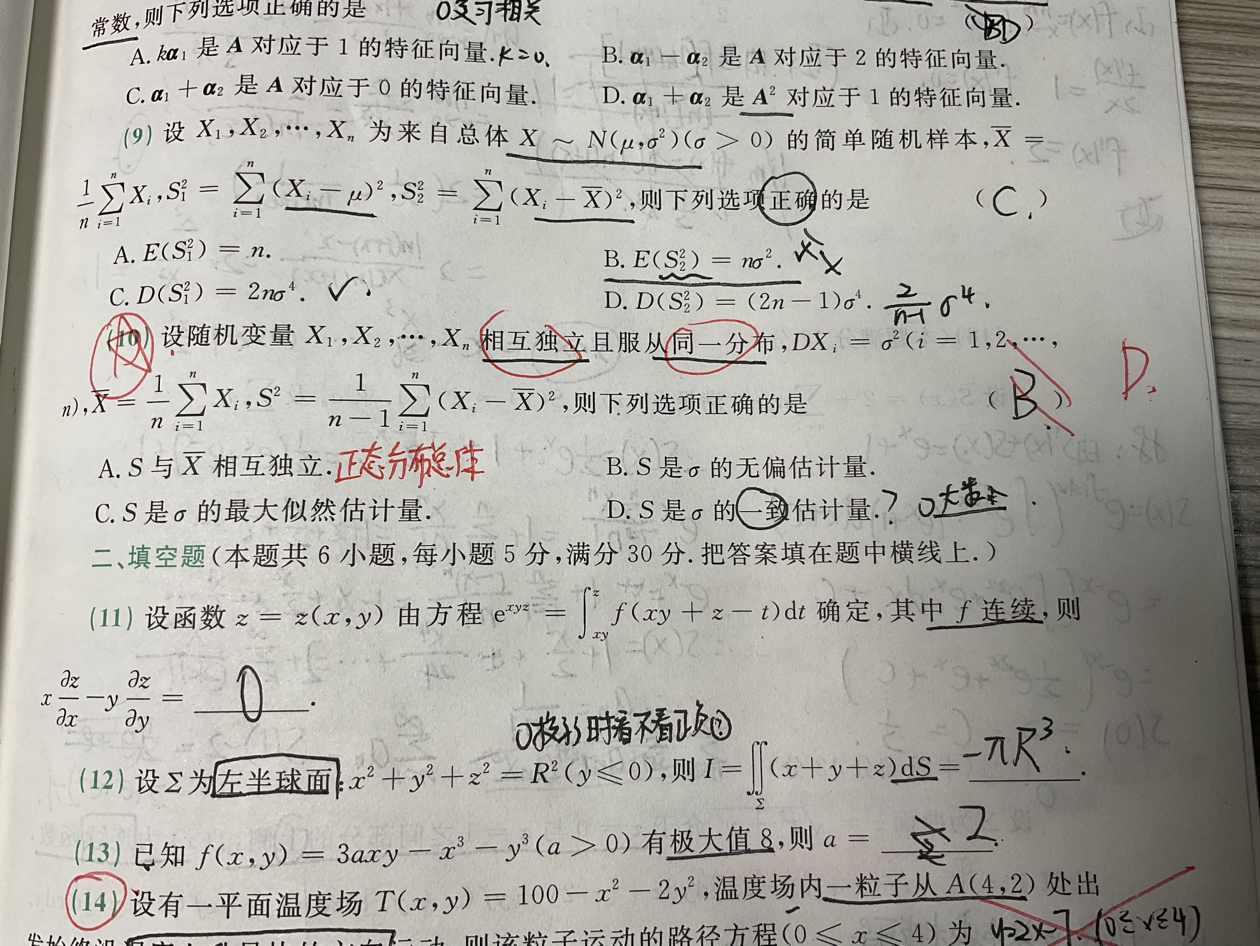 常数,则下列选项正确的是 (BD)
A. kα₁ 是 A 对应于 1 的特征向量. k=0、 B. α₁ − α₂ 是 A 对应于 2 的特征向量.
C. α₁ + α₂ 是 A 对应于 0 的特征向量. D. α₁ + α₂ 是 A² 对应于 1 的特征向量.
(9) 设 X₁,X₂,⋯,Xₙ 为来自总体 X ~ N(μ,σ²)(σ > 0) 的简单随机样本, X̄ =
1/n ∑ᵢ₌₁ⁿ Xᵢ, S₁² = ∑ᵢ₌₁ⁿ (Xᵢ − μ)², S₂² = ∑ᵢ₌₁ⁿ (Xᵢ − X̄)²,则下列选项正确的是 (C.)
A. E(S₁²) = n. B. E(S₂²) = nσ².
C. D(S₁²) = 2nσ⁴. ✓. D. D(S₂²) = (2n − 1)σ⁴. 2/(n-1) σ⁴.
(10) 设随机变量 X₁,X₂,⋯,Xₙ 相互独立且服从同一分布,DXᵢ = σ²(i = 1,2,⋯,
n), X̄ = 1/n ∑ᵢ₌₁ⁿ Xᵢ, S² = 1/(n − 1) ∑ᵢ₌₁ⁿ (Xᵢ − X̄)²,则下列选项正确的是 (B.) D.
A. S 与 X̄ 相互独立. 正态分布总体 B. S 是 σ 的无偏估计量.
C. S 是 σ 的最大似然估计量. D. S 是 σ 的一致估计量. ?
二、填空题(本题共 6 小题,每小题 5 分,满分 30 分.把答案填在题中横线上.)
(11) 设函数 z = z(x,y) 由方程 e^{xyz} = ∫_{xy}^{z} f(xy + z − t)dt 确定,其中 f 连续,则
x ∂z/∂x − y ∂z/∂y = 0.
投影时看不看正负
(12) 设 Σ 为左半球面: x² + y² + z² = R²(y ≤ 0),则 I = ∬_Σ (x + y + z)dS = −πR³.
(13) 已知 f(x,y) = 3axy − x³ − y³(a > 0) 有极大值 8,则 a = 2.
(14) 设有一平面温度场 T(x,y) = 100 − x² − 2y²,温度场内一粒子从 A(4,2) 处出
则该粒子运动的路径方程(0 ≤ x ≤ 4) 为 (0≤x≤4)